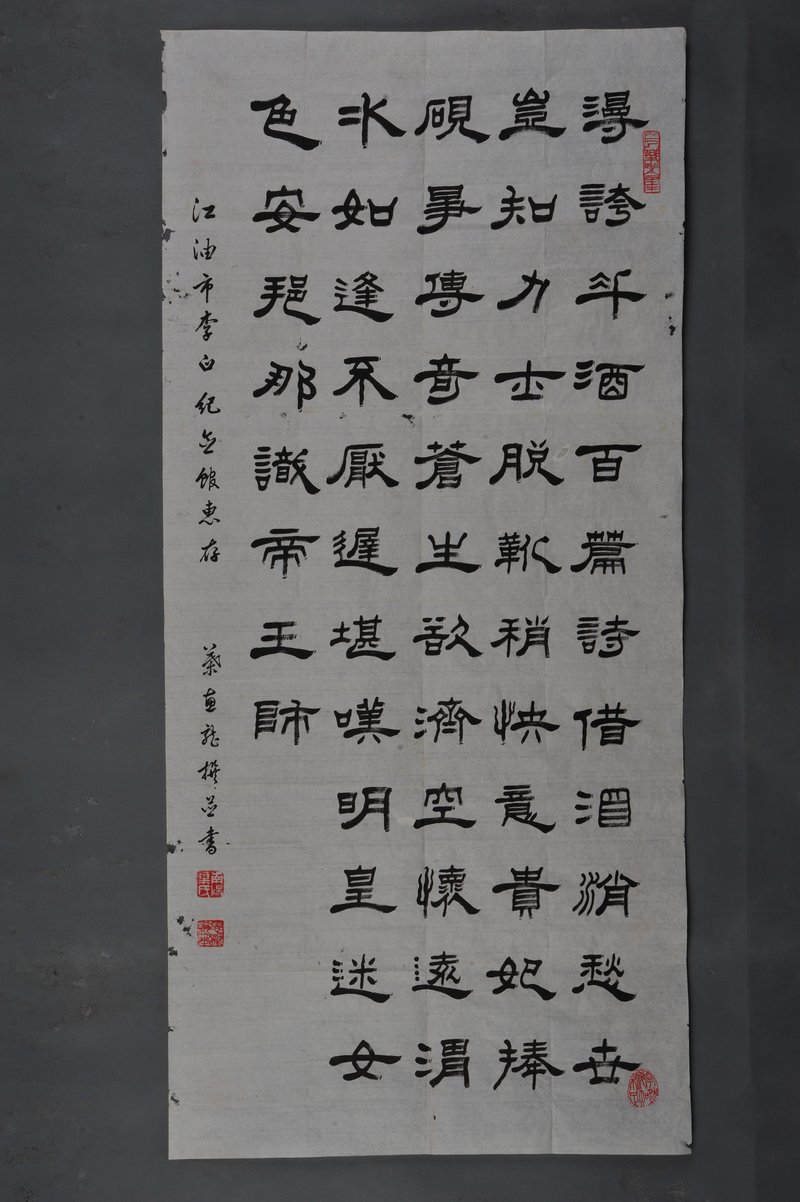 漫誇斗酒百篇詩借酒消愁世
豈知力士脱靴稍快意貴妃捧
硯爭傳奇蒼生欲濟空懷遠渭
水如逢不厭遲堪嘆明皇迷女
色安邑那識帝王師
江油市李白紀念館惠存
葉直龍撰並書